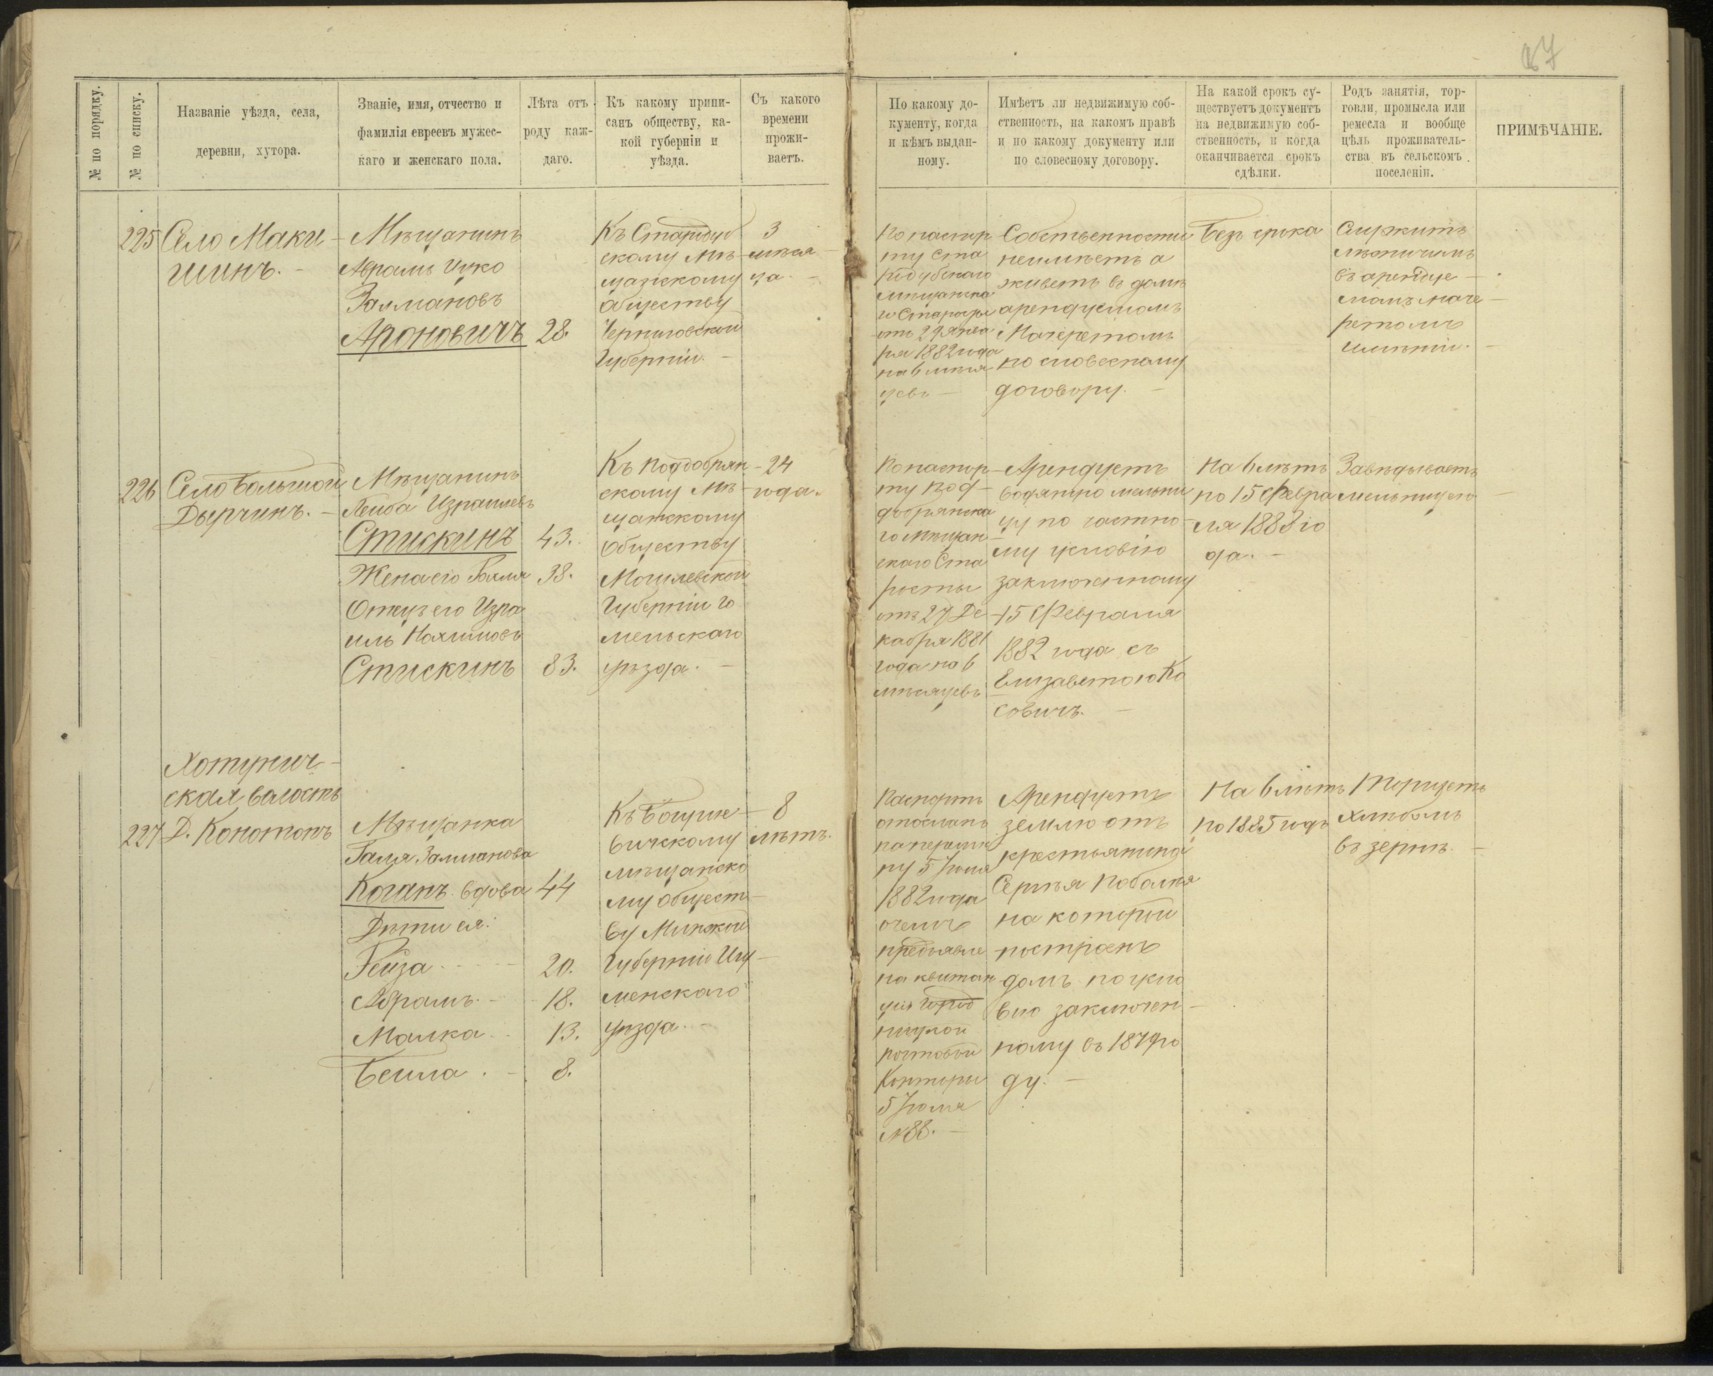 27
№ по порядку.
№ по списку.
Названіе уѣзда, села,
деревни, хутора.
Званіе, имя, отчество и
фамилія евреевъ мужес-
каго и женскаго пола.
Лѣта отъ
роду каж-
даго.
Къ какому припи-
санъ обществу, ка-
кой губерніи и
уѣзда.
Съ какого
времени
прожи-
ваетъ.
По какому до-
кументу, когда
и кѣмъ выдан-
ному.
Имѣетъ ли недвижимую соб-
ственность, на какомъ правѣ
и по какому документу или
по словесному договору.
На какой срокъ су-
ществуетъ документъ
на недвижимую соб-
ственность, и когда
оканчивается срокъ
сдѣлки.
Родъ занятія, тор-
говли, промысла или
ремесла и вообще
цѣль проживатель-
ства въ сельскомъ
поселеніи.
ПРИМѢЧАНІЕ.
225
Село Маки-
шинъ.
Мѣщанинъ
Абрамъ Ицко
Залмановъ
Ароновичъ
28.
Къ Стародуб
скому Мѣ-
щанскому
Обществу
Черниговской
Губерніи.
3
мѣся
ца.
По паспор
ту Ста
родубскаго
мѣщанска
го Старосты
отъ 29 Янва
ря 1882 года
на 6 мѣся
цевъ
Собственности
неимѣетъ а
живетъ въ домѣ
арендуемомъ
Мачеретомъ
по словесному
договору.
Безъ срока
Служитъ
мѣльникомъ
въ арендуе
момъ Маче-
ретомъ
имѣніи.
226
Село Большой
Дырчинъ.
Мѣщанинъ
Лейба Израилевъ
Стискинъ
43.
Жена его Галя
38.
Отецъ его Изра
иль Нохимовъ
Стискинъ
83.
Къ Поддобрян
скому Мѣ-
щанскому
Обществу
Могилевской
Губерніи Го
мельскаго
уѣзда.
24
года.
По паспор
ту Под-
добрянска
го Мѣщан-
скаго Ста
росты
отъ 27 Де
кабря 1881
года на 6
мѣсяцевъ
Арендуетъ
водяную мельни
цу по частно
му условію
заключенному
15 Февраля
1882 года съ
Елизаветою Ко
совичъ.
На 6 лѣтъ
по 15 Февра
ля 1888 го
да.
Завѣдываетъ
мельницею
Хотунич-
ская волость
227
Д. Конотопъ
Мѣщанка
Галя Залманова
Коганъ вдова
44
Дѣти ея:
Гейза
20.
Абрамъ.
18.
Малка
13.
Бейла.
8.
Къ Богуше-
вичскому
мѣщанско
му общест-
ву Минской
Губерніи Игу-
менскаго
уѣзда.
8
лѣтъ.
Паспортъ
отосланъ
на перемѣ
ну 5 Іюля
1882 года
о чемъ
предъявле
на квитан
ція Город
ницкой
почтовой
Конторы
5 Іюля
№ 88.
Арендуетъ
землю отъ
крестьянина
Сергѣя
на которой
построенъ
домъ по усло
вію заключен-
ному въ 1879 го
ду.
На 6 лѣтъ
по 1885 годъ
Торгуетъ
хлѣбомъ
въ зернѣ.